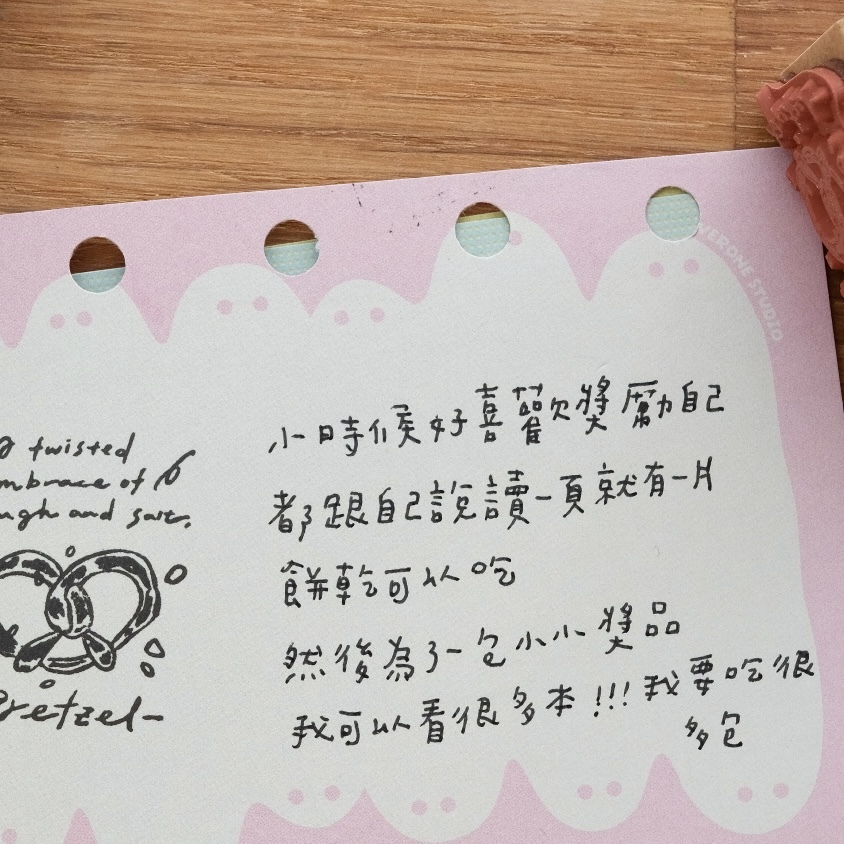 twisted
embrace of
and salt.
Pretzel-
小時候好喜歡獎勵自己
都跟自己說讀一頁就有一片
餅乾可以吃
然後為了一包小小獎品
我可以看很多本!!!我要吃很
多包
VERONE STUDIO